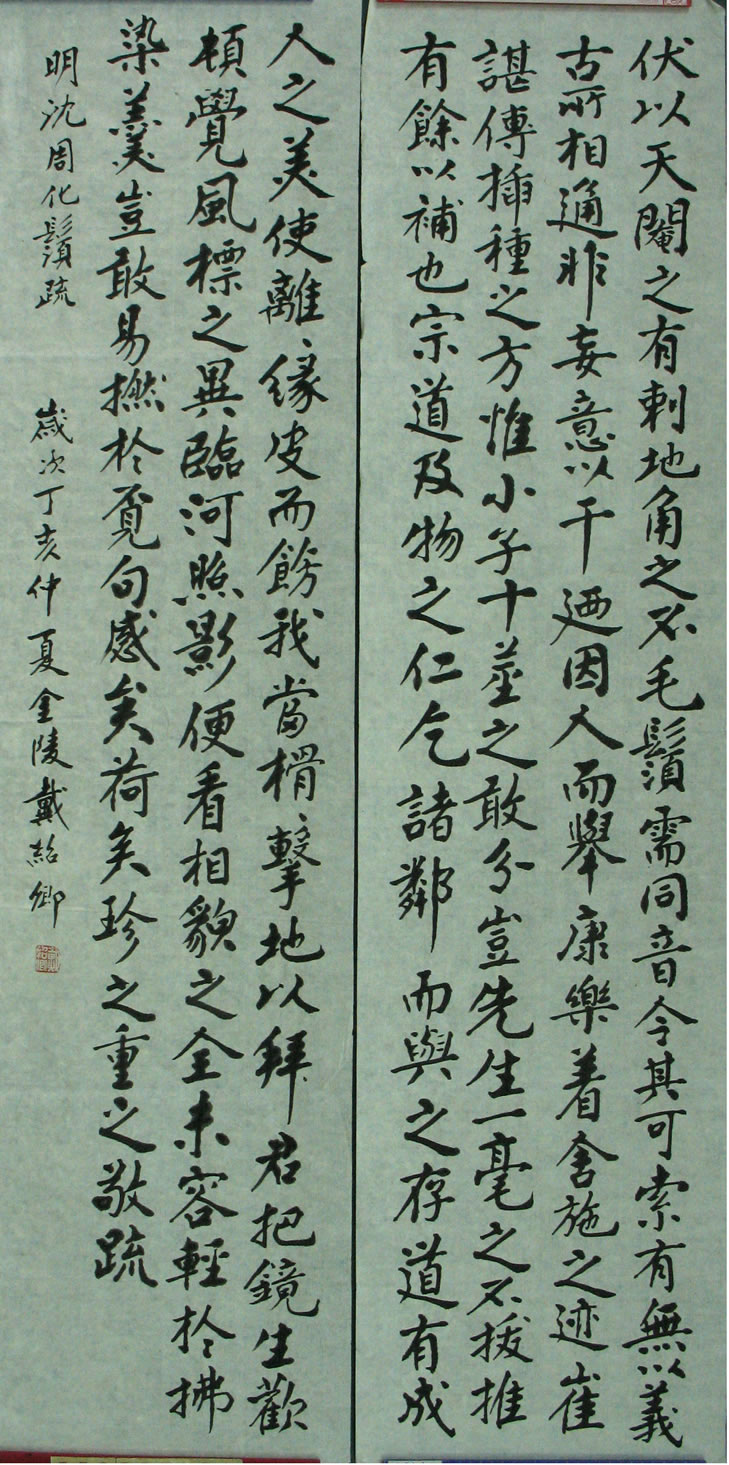 伏以天閹之有刺地角之不毛鬚需同音今其可索有無以義
古所相通非妄意以干迺因人而舉康樂着舍施之迹崔
諶傳插種之方惟小子十莖之敢分豈先生一毫之不拔推
有餘以補也宗道及物之仁乞諸鄰而與之存道有成
人之美使離、緣皮而餝我當榾、擊地以拜君把鏡生歡
頓覺風標之異臨河照影便看相貌之全未容輕於拂
染羹豈敢易撚於覓句感矣荷矣珍之重之敬疏
明沈周化鬚疏 歲次丁亥仲夏金陵戴紹卿